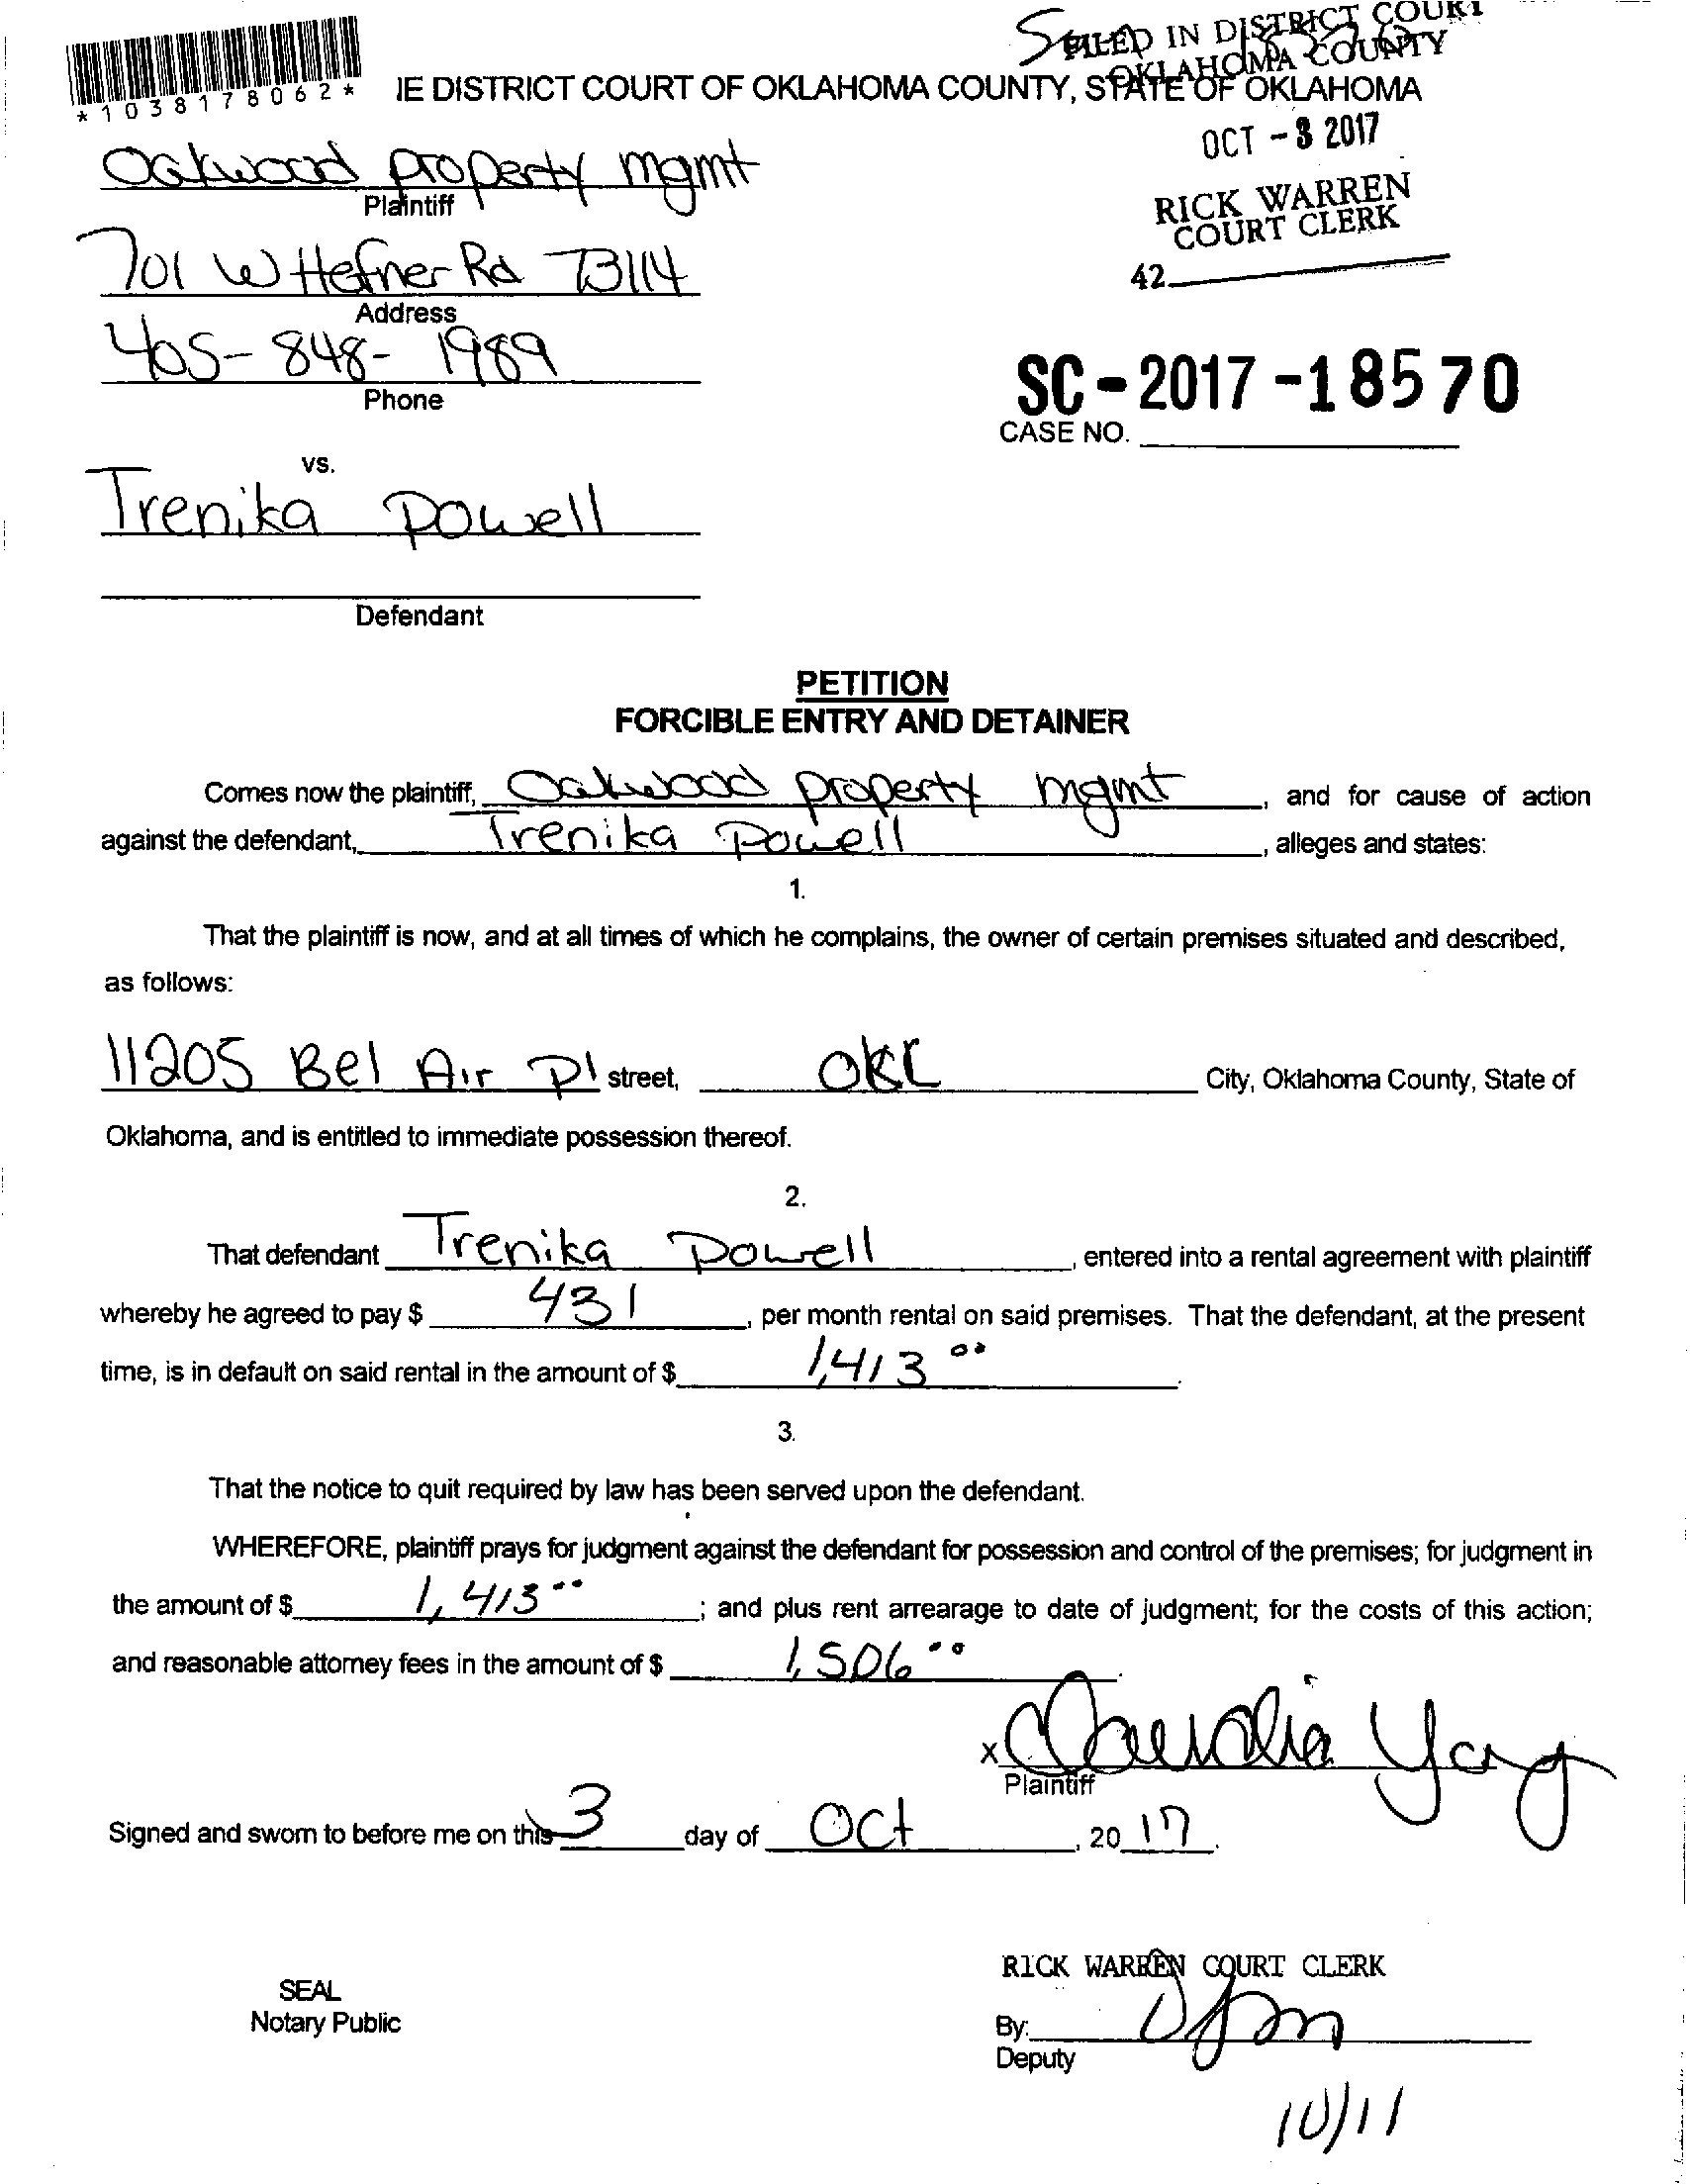 FILED IN DISTRICT COURT
OKLAHOMA COUNTY
*1038178062*
IE DISTRICT COURT OF OKLAHOMA COUNTY, STATE OF OKLAHOMA
OCT -3 2017
Oakwood property mgmt
Plaintiff
RICK WARREN
COURT CLERK
701 W Hefner Rd 73114
42
Address
405-848-1989
Phone
SC-2017-18570
CASE NO.
vs.
Trenika Powell
Defendant
PETITION
FORCIBLE ENTRY AND DETAINER
Comes now the plaintiff, Oakwood property mgmt, and for cause of action
against the defendant, Trenika Powell, alleges and states:
1.
That the plaintiff is now, and at all times of which he complains, the owner of certain premises situated and described,
as follows:
11205 Bel Air Pl street, OKC City, Oklahoma County, State of
Oklahoma, and is entitled to immediate possession thereof.
2.
That defendant Trenika Powell, entered into a rental agreement with plaintiff
whereby he agreed to pay $ 431, per month rental on said premises. That the defendant, at the present
time, is in default on said rental in the amount of $ 1,413 00.
3.
That the notice to quit required by law has been served upon the defendant.
WHEREFORE, plaintiff prays for judgment against the defendant for possession and control of the premises; for judgment in
the amount of $ 1,413 00; and plus rent arrearage to date of judgment; for the costs of this action;
and reasonable attorney fees in the amount of $ 1,506 00.
x Claudia Yang
Plaintiff
Signed and sworn to before me on this 3 day of Oct, 2017.
RICK WARREN COURT CLERK
SEAL
Notary Public
By:
Deputy
10/11